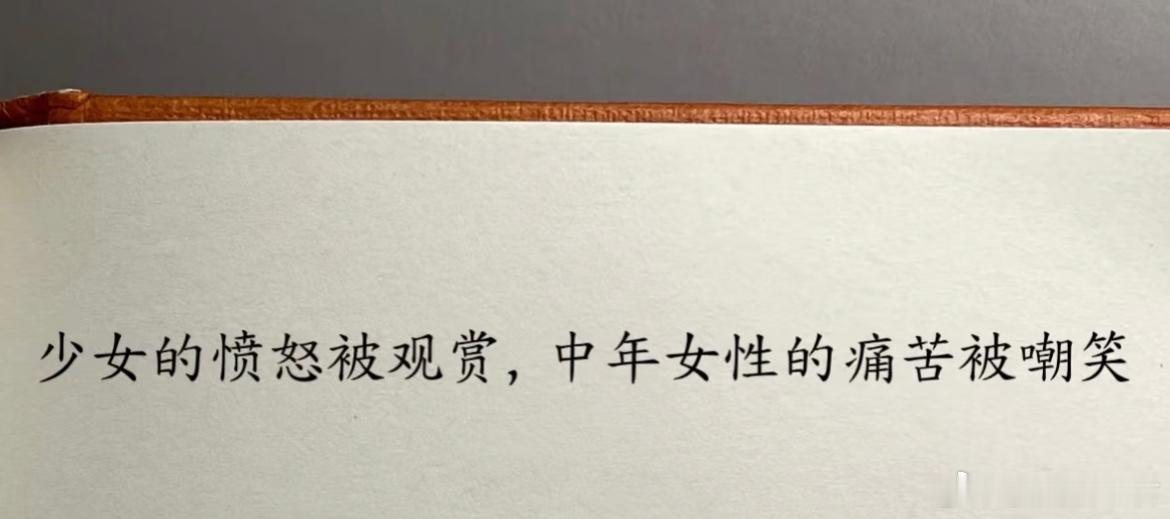 少女的愤怒被观赏，中年女性的痛苦被嘲笑